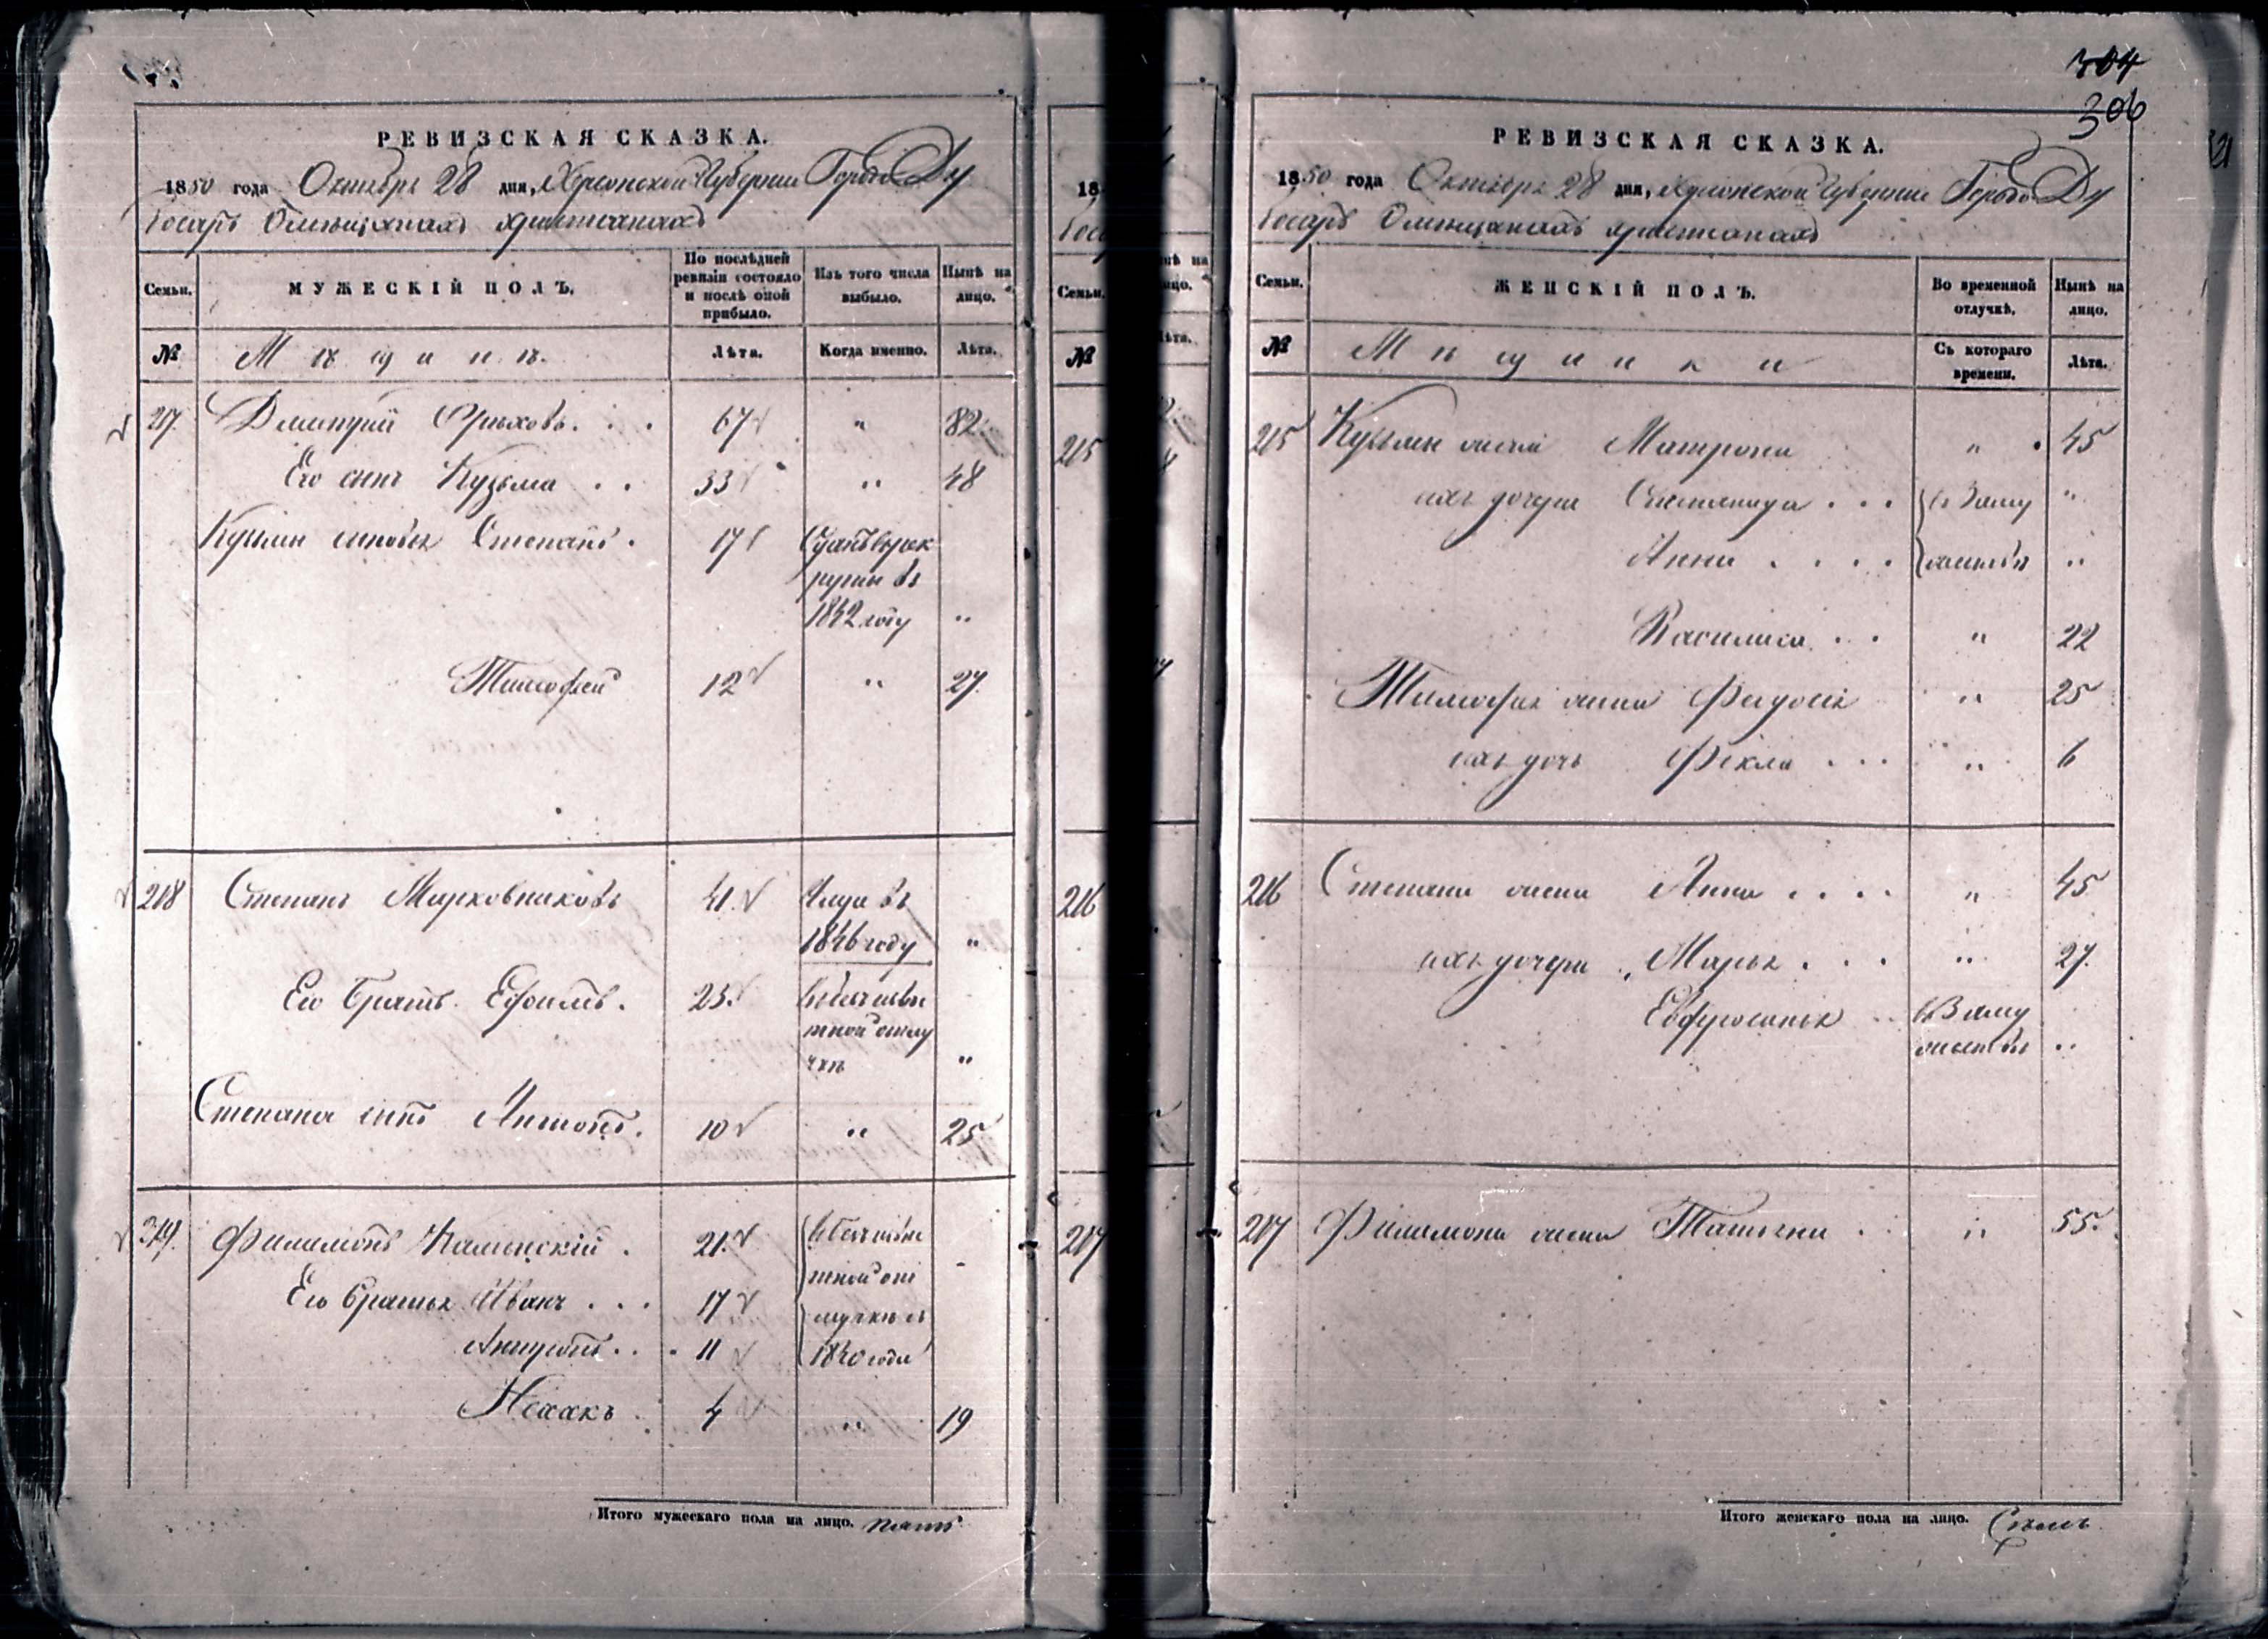 РЕВИЗСКАЯ СКАЗКА.
1850 года Октября 28 дня, Херсонской Губернии Города Ду
боссаръ О мещанахъ христианахъ
Семьи. МУЖЕСКІЙ ПОЛЪ. По послѣдней ревизіи состояло и послѣ оной прибыло. Изъ того числа выбыло. Нынѣ на лицо.
№ Мѣщанѣ. Лѣта. Когда именно. Лѣта.
217. Дмитрий Орѣховъ. . . 67 " 82
Его сынъ Кузьма . . 33 " 48
Кузьмы сыновья Степанъ . 17 Сданъ въ рек
руты въ
1842 году "
Тимофей 12 " 27.
218 Степанъ Марковниковъ 41. Умре въ
1846 году "
Его братъ Ефимъ. 25. въ безъизвѣ
стной отлу
чкѣ "
Степана сынъ Антонъ. 10 " 25
219. Филимонъ Каминскій . 21. въ безъизвѣ
стной от -
Его братья Иванъ . . . 17 лучкѣ съ
Андронъ. . . 11 1840 года
Исаакъ 4 " 19
Итого мужескаго пола на лицо. пять
18
Семьи.
№
215
216
217
304
306
РЕВИЗСКАЯ СКАЗКА.
1850 года Октября 28 дня, Херсонской Губернии Города Ду
боссаръ О мещанахъ христианахъ
Семьи. ЖЕНСКІЙ ПОЛЪ. Во временной отлучкѣ. Нынѣ на лицо.
№ Мѣщанки Съ котораго времени. Лѣта.
215 Кузьмы жена Матрона " 45
ихъ дочери Степанида . . . въ Заму "
Анна . . . . жествѣ "
Василиса . . " 22
Тимофея жена Федосья " 25
ихъ дочь Фекла . . . " 6
216 Степана жена Анна . . . . " 45
ихъ дочери Марья . . . " 27.
Евфросинья . . въ Заму
жествѣ "
217 Филимона жена Татьяна . . " 55.
Итого женскаго пола на лицо. Семь